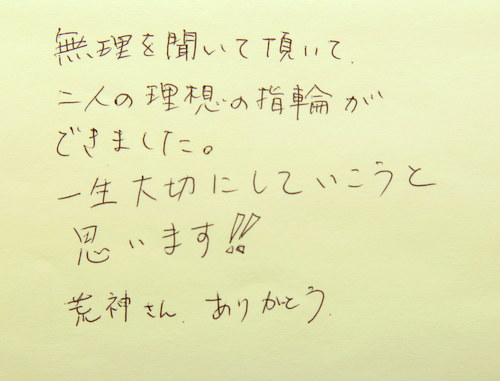 無理を聞いて頂いて、
二人の理想の指輪が
できました。
一生大切にしていこうと
思います!!
荒神さん、ありがとう。